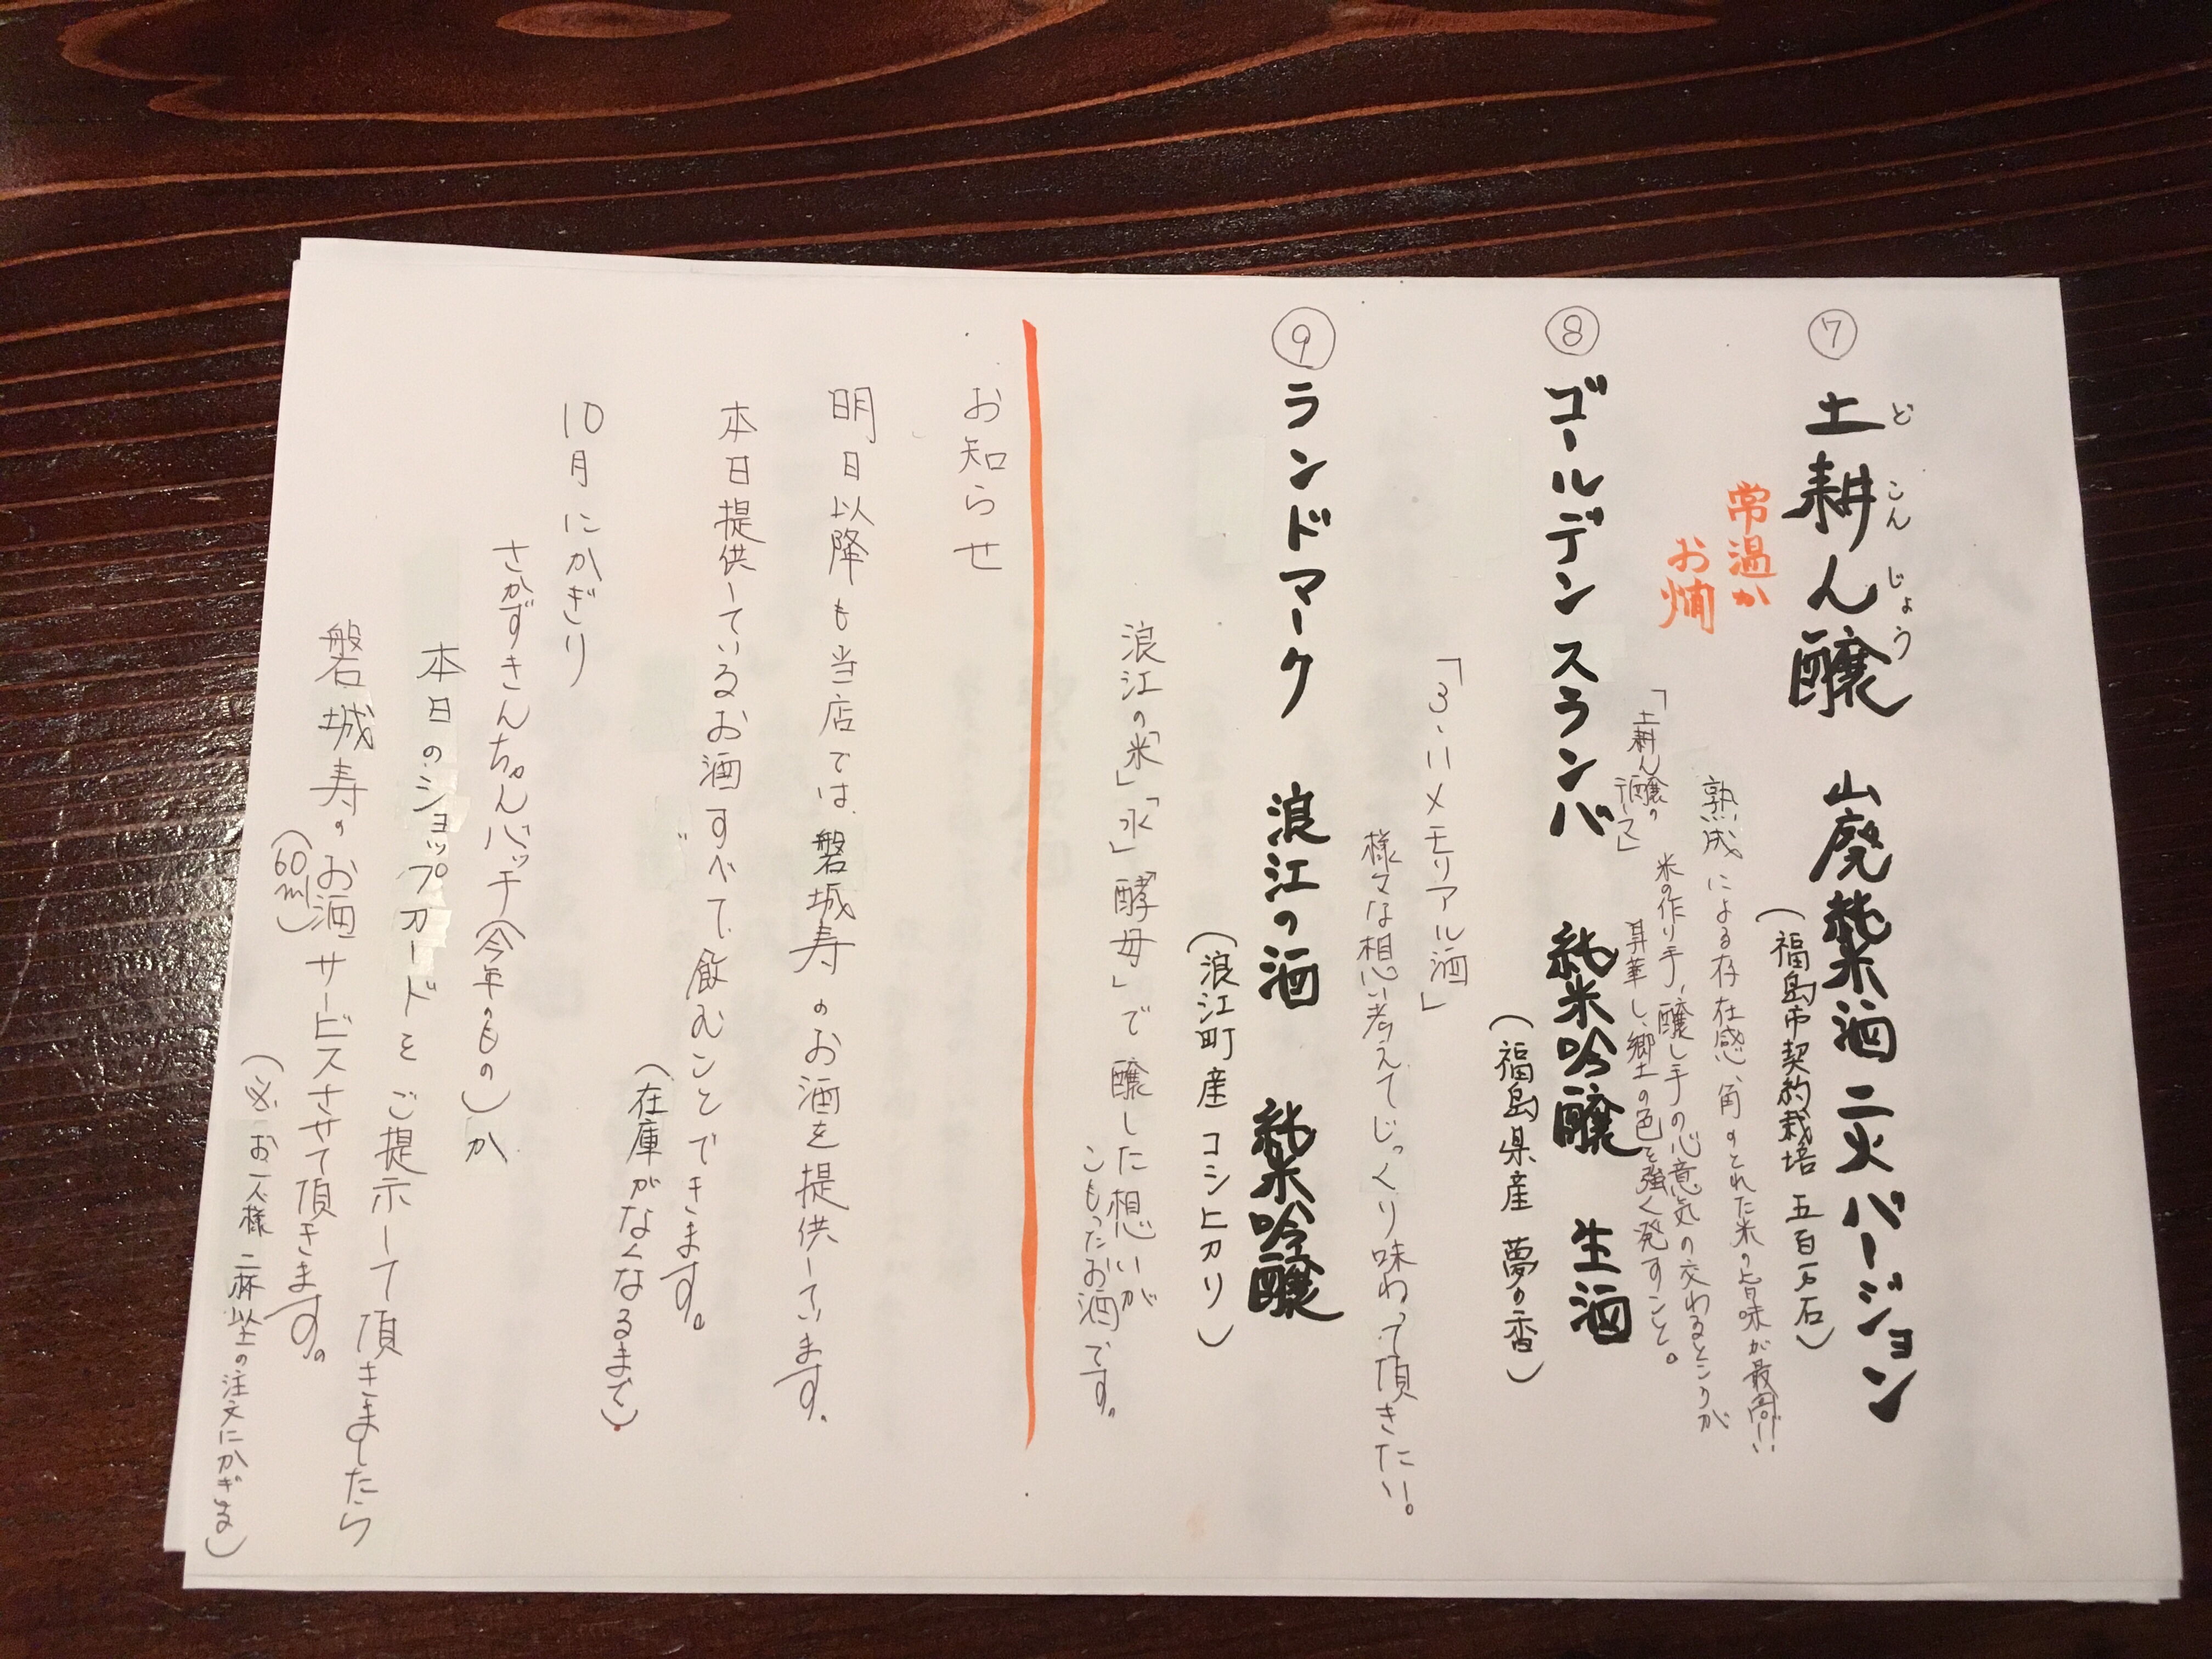 ⑦ 土耕ん醸 山廃純米酒 二火バージョン
どこんじょう
常温か
お燗
(福島市契約栽培 五百万石)
熟成による存在感、角のとれた米の旨味が最高!!
「土耕ん醸の
テーマ」
米の作り手、醸し手の心意気の交わるところが
昇華し、郷土の色を強く発すこと。
⑧ ゴールデンスランバ 純米吟醸 生酒
(福島県産 夢の香)
「3.11メモリアル酒」
様々な想い考えてじっくり味わって頂きたい。
⑨ ランドマーク 浪江の酒 純米吟醸
(浪江町産 コシヒカリ)
浪江の「米」「水」「酵母」で醸した想いが
こもったお酒です。
お知らせ
明日以降も当店では、磐城寿のお酒を提供しています。
本日提供しているお酒すべて飲むことできます。
(在庫がなくなるまで)
10月にかぎり
さかずきんちゃんバッチ(今年のもの)か
本日のショップカードをご提示して頂きましたら
磐城寿のお酒サービスさせて頂きます。
(60ml)
(※お一人様二杯以上の注文にかぎる)